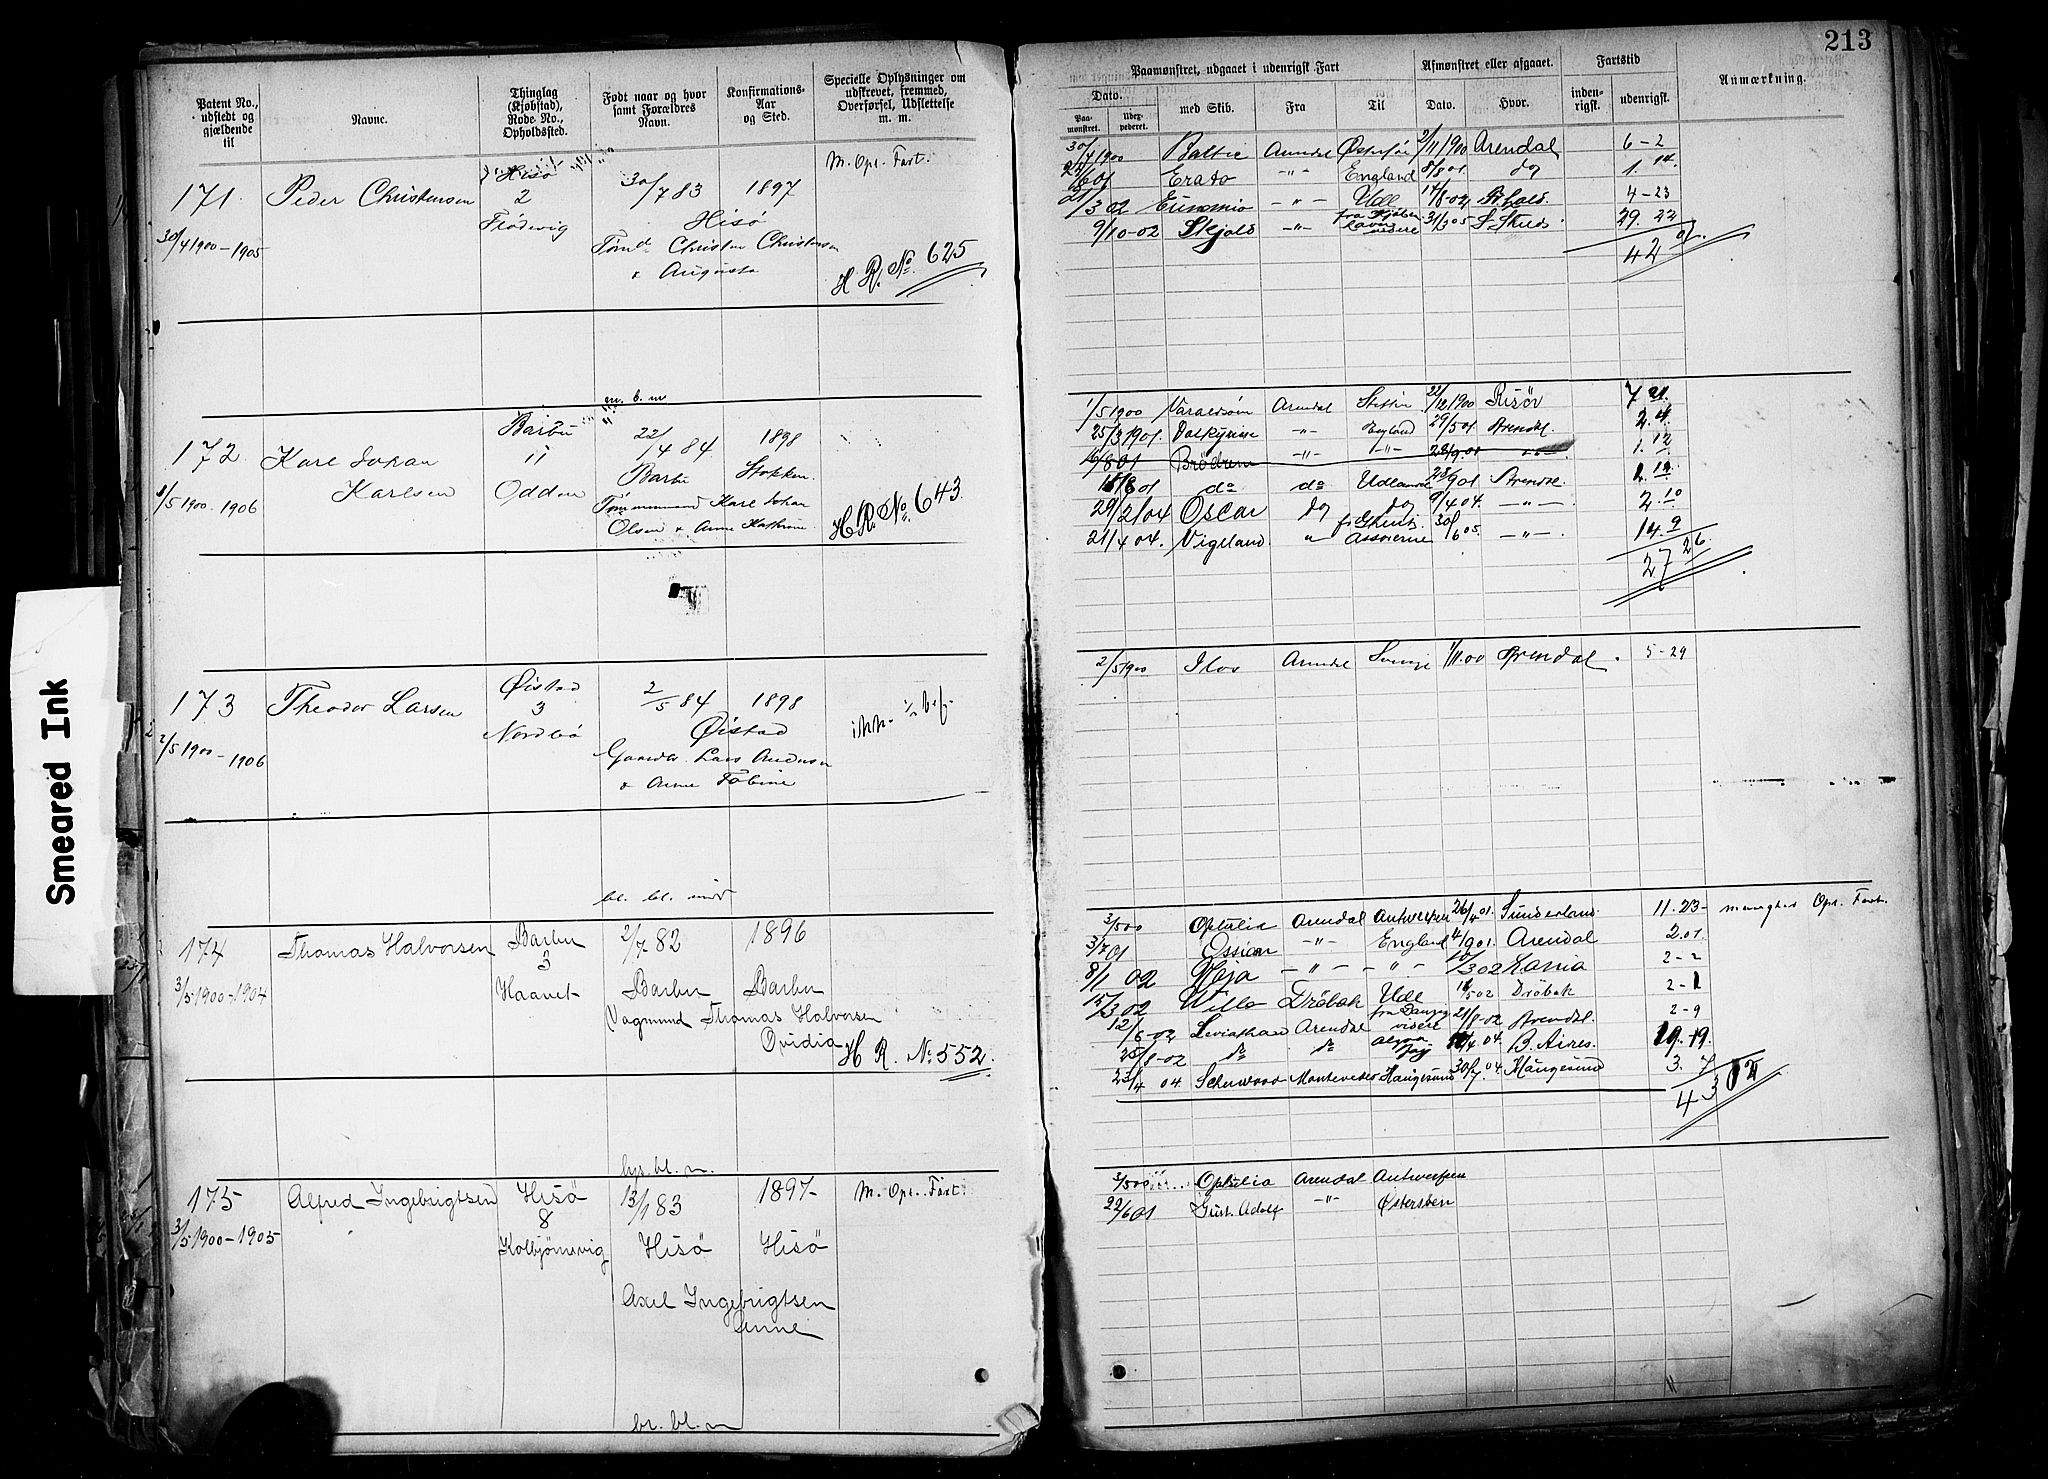 213
Patent No., udstedt og gjældende til
Navne.
Thinglag (Kjøbstad), Rode No., Opholdssted.
Født naar og hvor samt Forældres Navn.
Konfirmations-Aar og Sted.
Specielle Oplysninger om udskrevet, fremmed, Overførsel, Udslettelse m. m.
Paamønstret, udgaaet i udenrigsk Fart
Afmønstret eller afgaaet.
Fartstid
Anmærkning.
Dato.
Paamønstret.
Udexpederet.
med Skib.
Fra
Til
Dato.
Hvor.
indenrigsk.
udenrigsk.
171. Peder Christensen Hisö 30/7 83 1897 M. Opr. Fart.
2
30/4 1900-1905 Hisö
Tømd Christen Christensen
& Augusta
H R. No. 625
30/4 1900 Baltic Arendal 2/11 1900 Arendal 6-2
Erato -"- England 8/8 01. do 1. 14.
/3 02 -"- Udl. 14/8-02 4-23
9/10-02 Skjold -"- 31/3 05 29. 22
42 01.
en. b. m
172. Karl Johan Karlsen Barbu 22/4 84 1898
11
Barbu Stokken.
1/5 1900-1906 Odden
Tømmermand Karl Johan
Olsen & Anne Kathrine.
H R. No. 643.
1/5 1900 Varaldsöm Arendal Stettin 22/12 1900 Risör 7 21.
25/3 1901. Valkyrien -"- England 29/5 01. Arendal. 2. 4.
16/8 01 Brödrene -"- -"- 28/9. 01 -"- 1. 12
18/8 01 do do Udlandet 28/9 01 Arendal 1. 10
29/2/04 Oscar do do 9/4 04. -"- 2. 10
21/4 04. Vigeland. " 30/6 05. -"- 14. 9
27 26.
173 Theodor Larsen Øistad 2/5 84 1898
3
Nordbö Øistad
2/5 1900-1906
Gaardbr. Lars Andersen
& Anne Tobine
2/5 1900 Ilos Arendal Sverige 1/11. 00 Arendal. 5-29
bl. bl. mid
174 Thomas Halvorsen Barbu 2/7 82 1896
3
3/5 1900-1904 Haavet Barbu Barbu
Vognmand Thomas Halvorsen
Ovidia
H R. No. 552.
3/5 00 Ophelia Arendal Antwerpen 26/4 01. Sunderland. 11. 23- Opr. Fart.
3/7 01 Ossian -"- England 4/9 01. Arendal 2. 01.
8/1 02 Veja -"- -"- 10/3 02 2-2
15/3 02 Ville Dröbak Udl. 16/5 02 Dröbak 2-1
12/6-02 Leviathan Arendal fra Danzig videre 21/8-02 Arendal. 2-9
25/8-02 do do 4 04. B. Aires. 19. 19.
23/4 04. Scherwood Montevideo Haugesund 30/7. 04. Haugesund 3. 7
43 02
lys. bl. m.
175 Alfred Ingebrigtsen Hisö 13/1 83 1897- M. Opr. Fart.
8
3/5 1900-1905 Kolbjörnsvig Hisö Hisö
Axel Ingebrigtsen
Anne
3/5 00 Ophelia Arendal Antwerpen
22/6 01 Gust. Adolf -"- Østersöen
br. bl. m
Smeared Ink